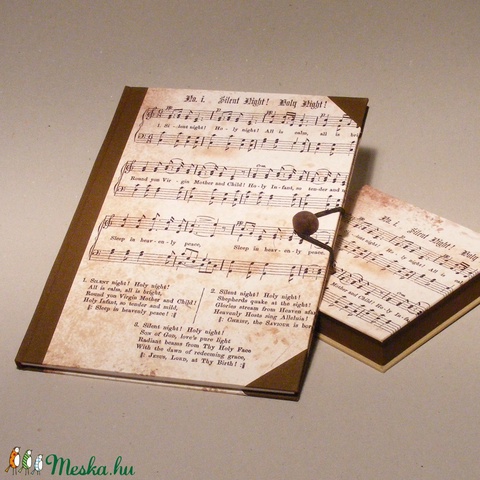 No. i. Silent Night! Holy Night!
1. Si - lent night! Ho - ly night! All is calm, all is
Round you Vir - gin Mother and Child! Ho-ly In-fant, so ten-der and
Sleep in heav - en - ly peace, Sleep in heav - en - ly
1. Silent night! Holy night!
All is calm, all is bright,
Round you Virgin Mother and Child!
Holy Infant, so tender and mild,
𝄆 Sleep in heavenly peace! 𝄇
2. Silent night! Holy night!
Shepherds quake at the sight!
Glories stream from Heaven
Heavenly Hosts sing Alleluia!
𝄆 Christ, the Saviour is
3. Silent night! Holy night!
Son of God, love's pure light
Radiant beams from Thy Holy Face
With the dawn of redeeming grace,
𝄆 Jesus, Lord, at Thy Birth! 𝄇
No. i. Silent Night!
Meska.hu